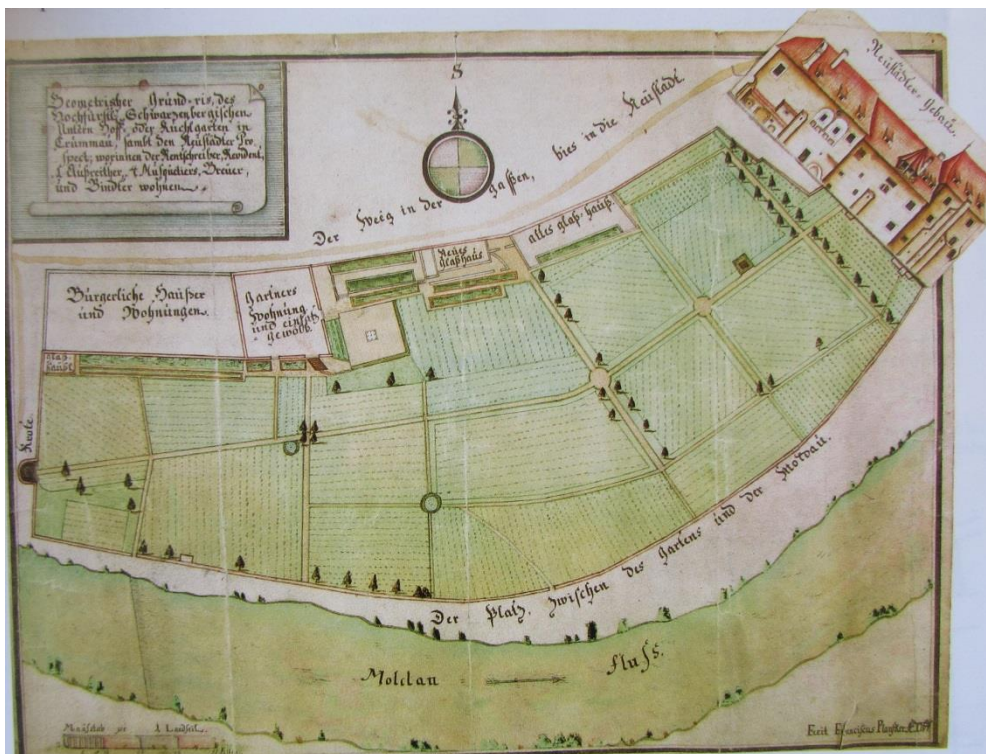 Geometrischer Gründ-ris, des
Hochfürstl. Schwarzenbergischen
Untern Hoff- oder Kuchlgarten in
Crummau, sambt den Neüstädter Pro-
spect, worinnen der Rentschreiber, Revident,
Außreither, Musquetiers, Breuer,
und Bindter wohnen.
S
Neüstädter-Gebaü.
Der Weeg in der gaßen, bies in die Neüstadt
altes glaß-hauß.
Neües
glaßhaus
Bürgerliche Haüßer
und Wohnüngen.
Gartners
Wohnung
und einsatz
gewölb.
glaß-
hauße
Der Platz zwischen des Gartens und der Moldau.
Moldau Fluss.
Maaßstab